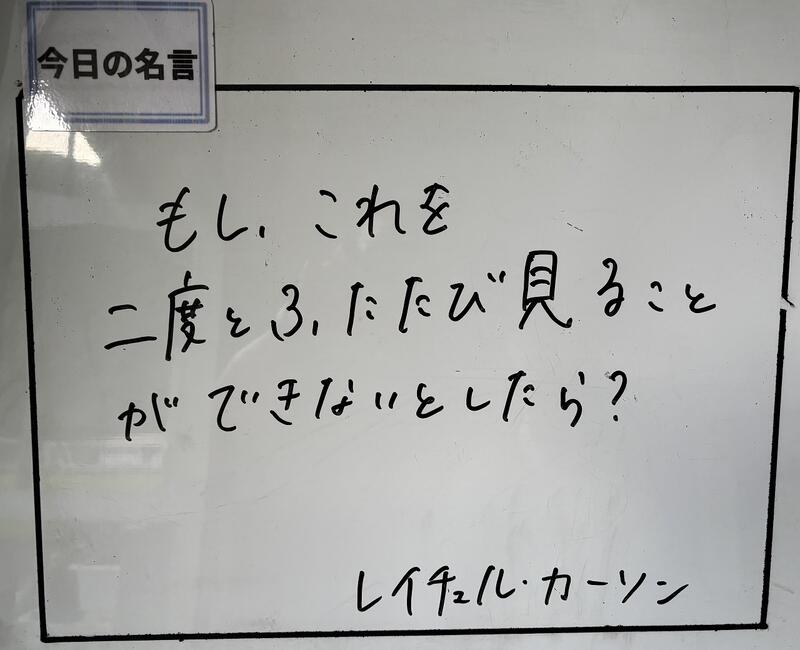 今日の名言
もし、これを
二度とふたたび見ること
ができないとしたら?
レイチェル・カーソン